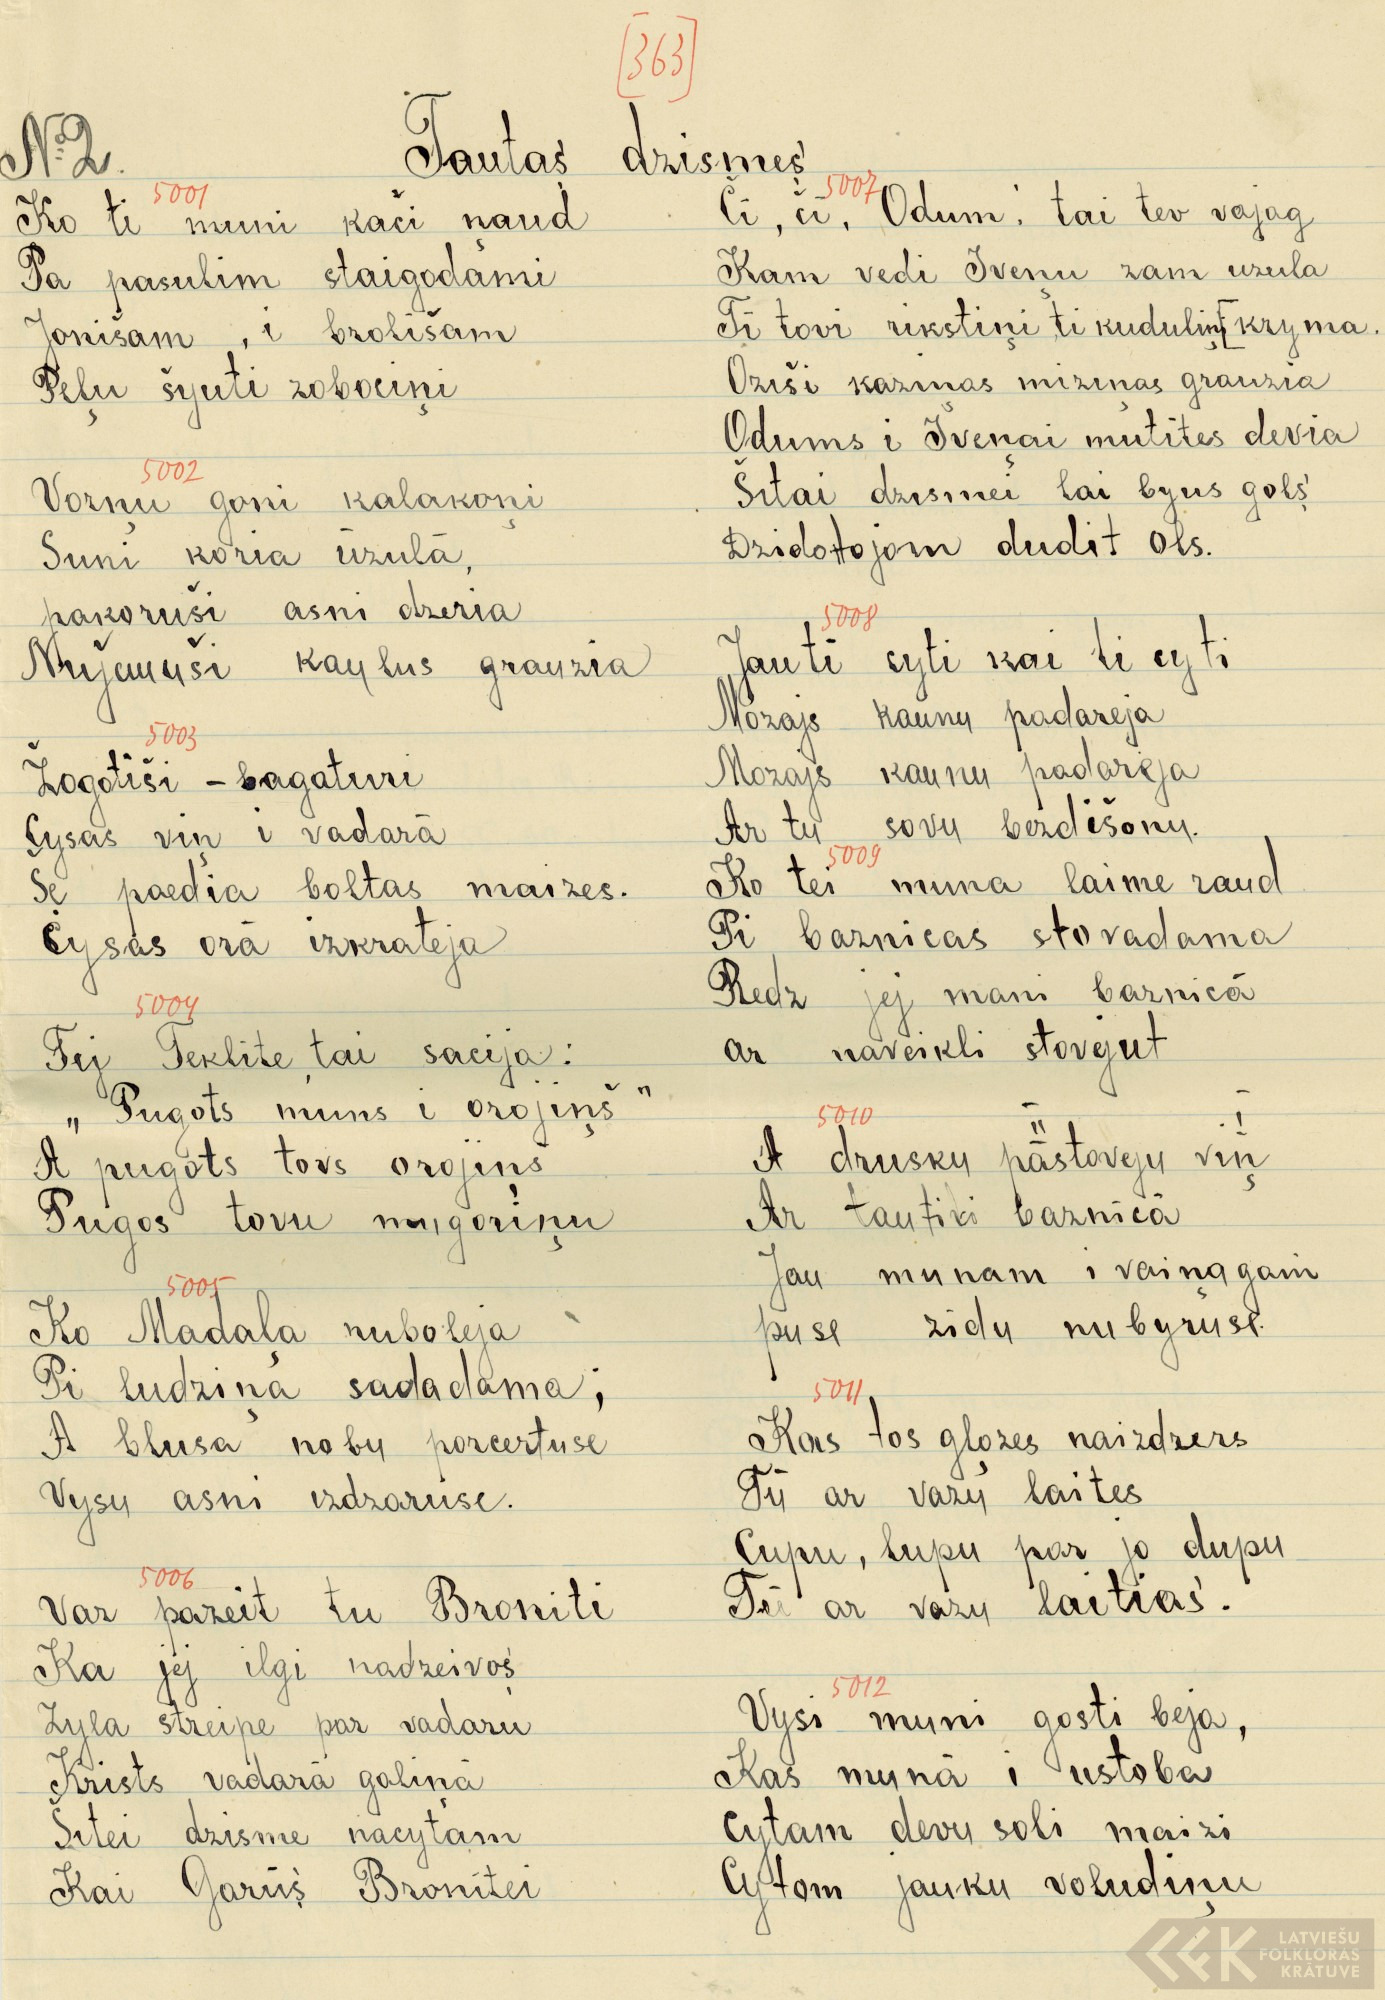 [363]
№ 2.
Tautas dzismeș
5001
Ko ti muni kači ņaud
Pa pasulim staigodami
Jonišam, i brolišam
Peļu šyuti zobociņi
5002
Vorņu goni kalakoņi
Suni koria ūzulā,
pakoruši asni dzeria
kaylus grauzia
5003
Žogotiši – bagaturi
Cysas viņ i vadarā
Sę paedia boltas maizes.
Cysas orā izkrateja
5004
Tej Teklite tai sacija:
„Pugots muns i orojiņš"
A pugots tovs orojiņš
Pugos tovu mugoriņu
5005
Ko Madaļa nuboleja
Pi ludziņa sadadama;
A blusa noby porcertuse
Vysu asni izdzoruse.
5006
Var pazeit tu Broniti
Ka jej ilgi nadzeivoș
Zyla streipe par vadaru
Krists vadarā goliņā
Šitei dzisme nacytam
Kai Garūș Bronitei
5007
Či, či, Odum! tai tev vajag
Kam vedi Ivenu zam uzula
Ti tovi rikstiņi, ti kuduliņi kryma.
Oziši kaziņas miziņas grauzia
Odums i Iveņai mutites devia
Šitai dzismei lai byus golș
Dzidotojom dudit ols.
5008
Jauti cyti kai ti cyti
Mozajs kaunu padareja
Mozajs kaunu padareja
Ar tu sovu bezdišonu.
5009
Ko tei muna laime raud
Pi baznicas stovadama
Redz jej mani baznicā
ar naveikli stovejut
5010
A drusku pāstoveju viņ
Ar tautiti baznicā
Jau munam i vaiņagam
puse zidu nubyruse.
5011
Kas tos glozes naizdzers
Tū ar vazu laites
Cupu, lupu par jo dupu
Tū ar vazu laitias.
5012
Vysi muni gosti beja,
Kas munā i ustoba
Cytam devu soli maizi
Cytom jauku voludiņu
LATVIEŠU
FOLKLORAS
KRĀTUVE